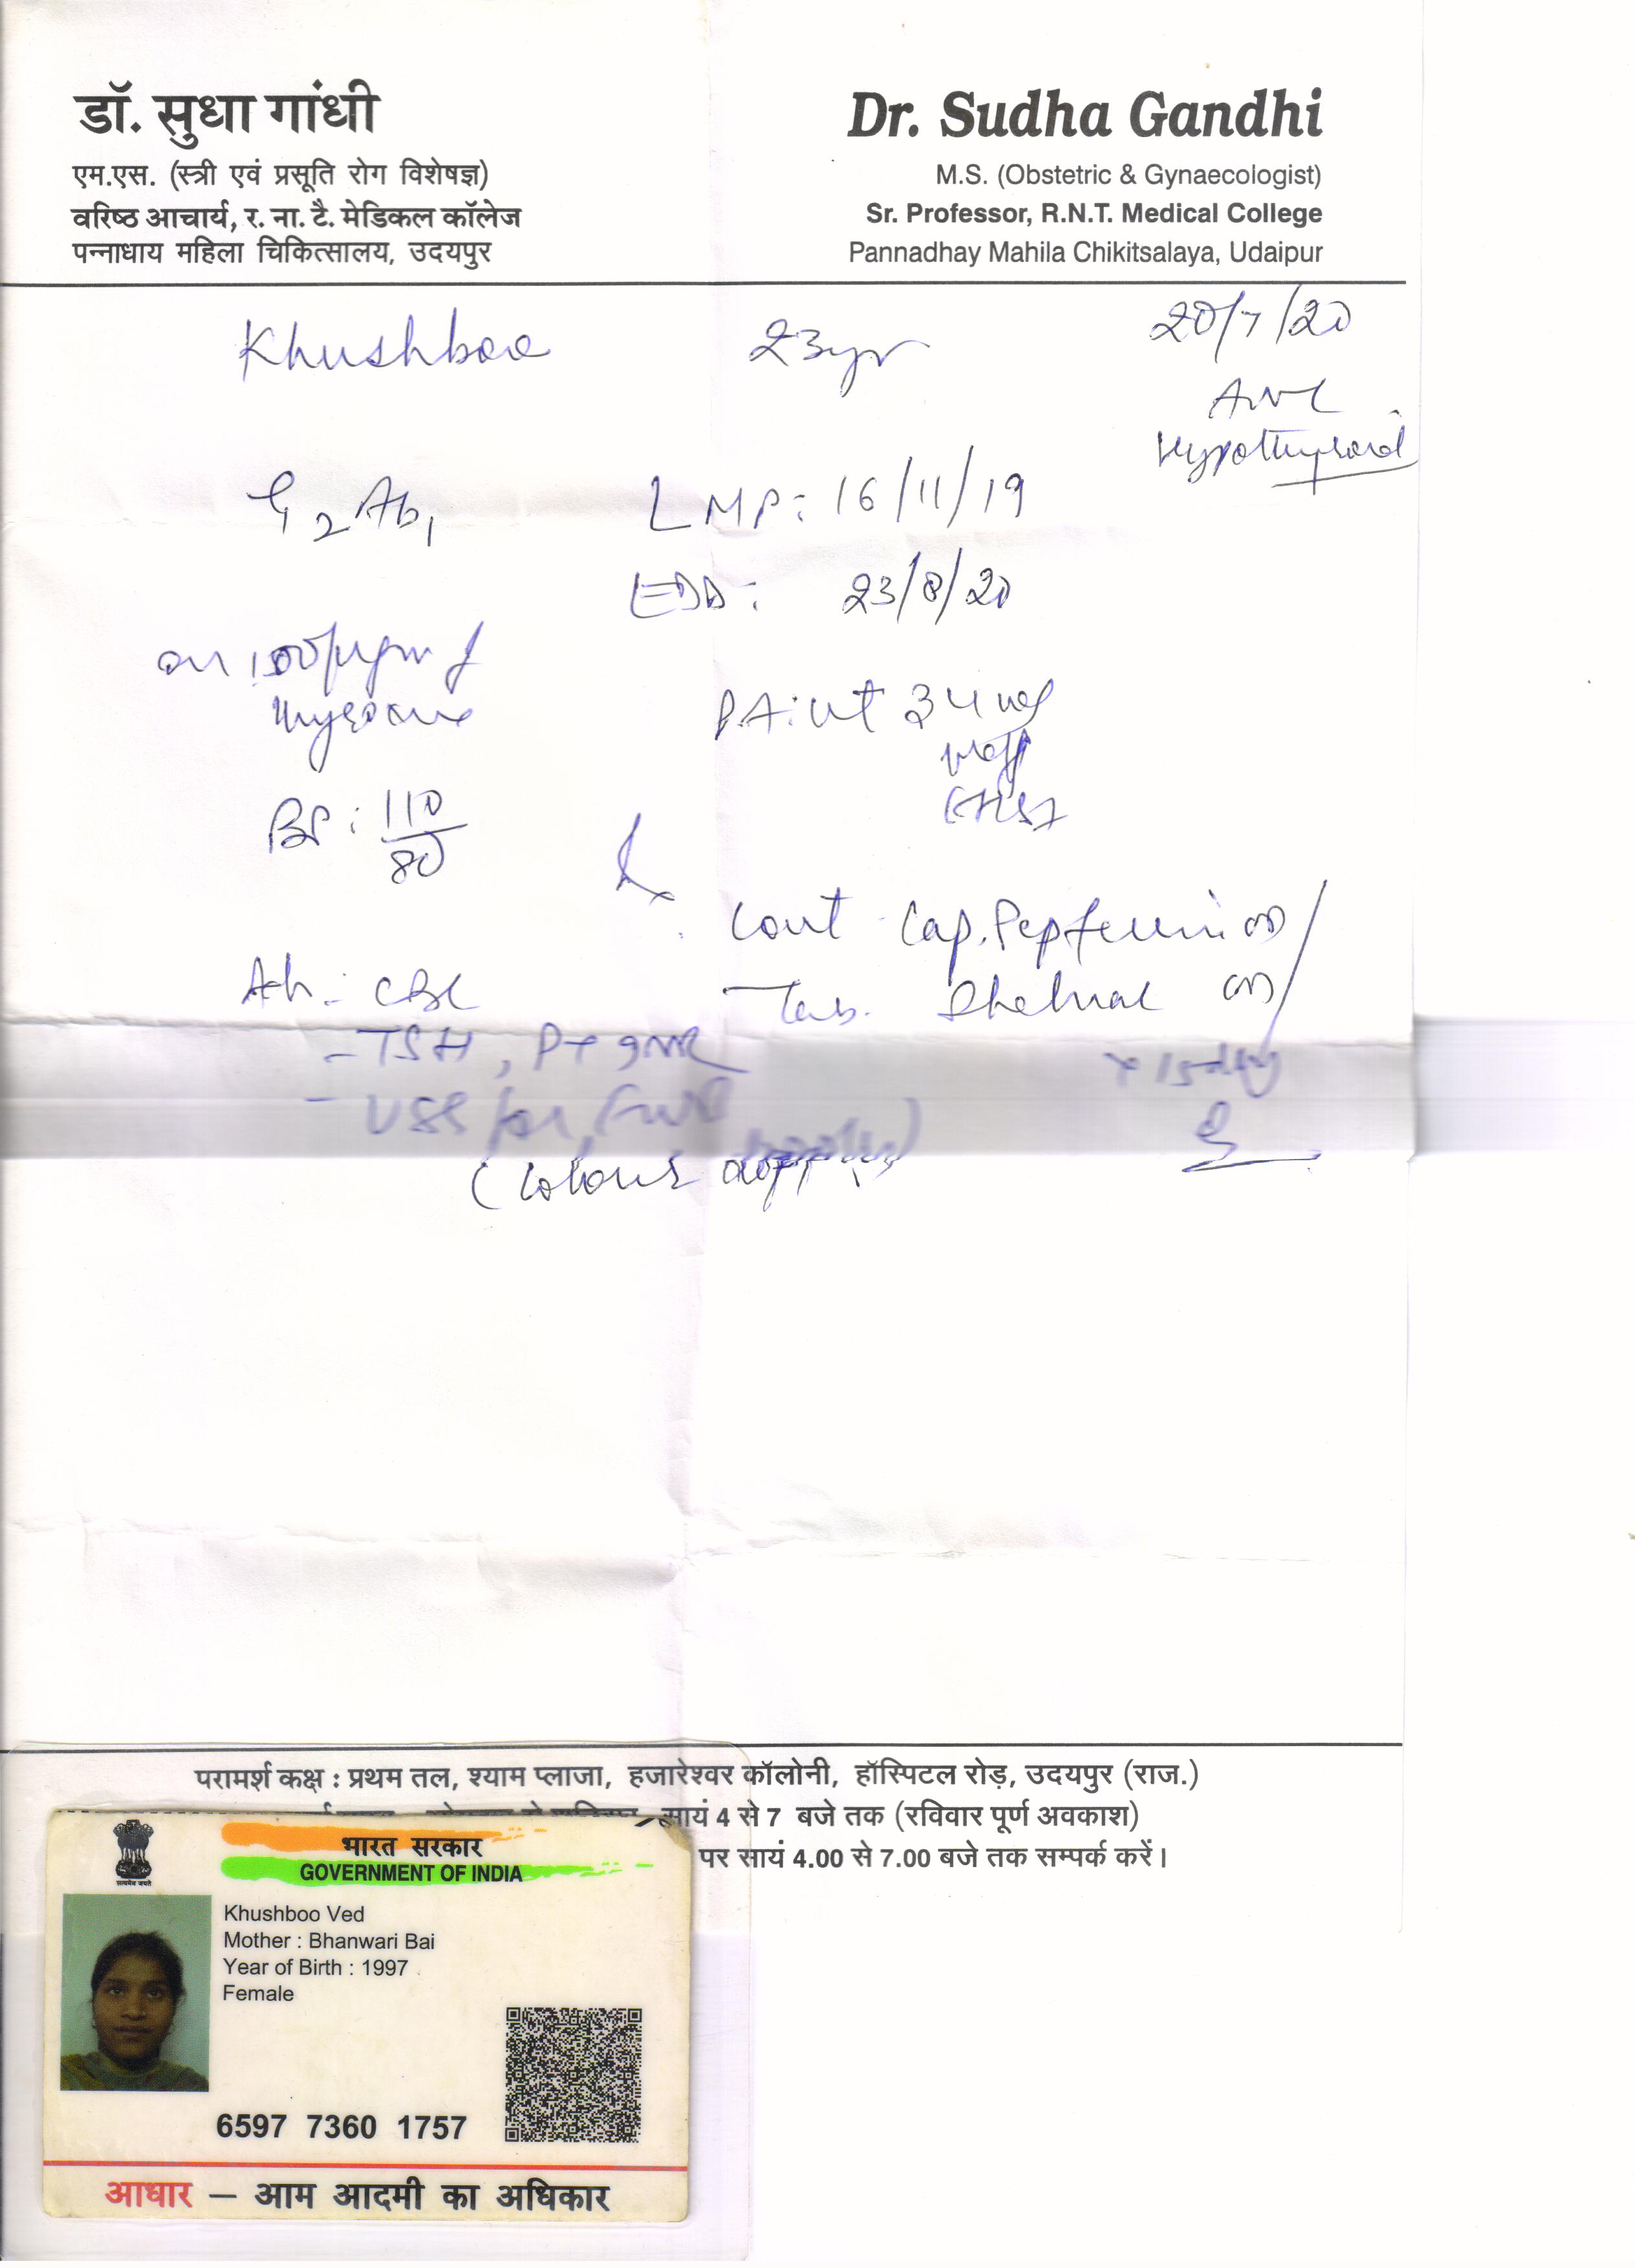 डॉ. सुधा गांधी
एम.एस. (स्त्री एवं प्रसूति रोग विशेषज्ञ)
वरिष्ठ आचार्य, र. ना. टै. मेडिकल कॉलेज
पन्नाधाय महिला चिकित्सालय, उदयपुर
Dr. Sudha Gandhi
M.S. (Obstetric & Gynaecologist)
Sr. Professor, R.N.T. Medical College
Pannadhay Mahila Chikitsalaya, Udaipur
Khushboo 23yr 20/7/20
ANC
Hypothyroid
G2Ab1 LMP: 16/11/19
EDD: 23/8/20
on 100µgm of
thyroxine
P.A: ut 34
BP: 110/80
Cont Cap.
Adv: CBC
Tab.
- TSH, PT INR
x 15 day
- USG for FWB
(Colour doppler)
परामर्श कक्ष : प्रथम तल, श्याम प्लाजा, हजारेश्वर कॉलोनी, हॉस्पिटल रोड़, उदयपुर (राज.)
सायं 4 से 7 बजे तक (रविवार पूर्ण अवकाश)
पर सायं 4.00 से 7.00 बजे तक सम्पर्क करें।
सत्यमेव जयते
भारत सरकार
GOVERNMENT OF INDIA
Khushboo Ved
Mother : Bhanwari Bai
Year of Birth : 1997
Female
6597 7360 1757
आधार – आम आदमी का अधिकार